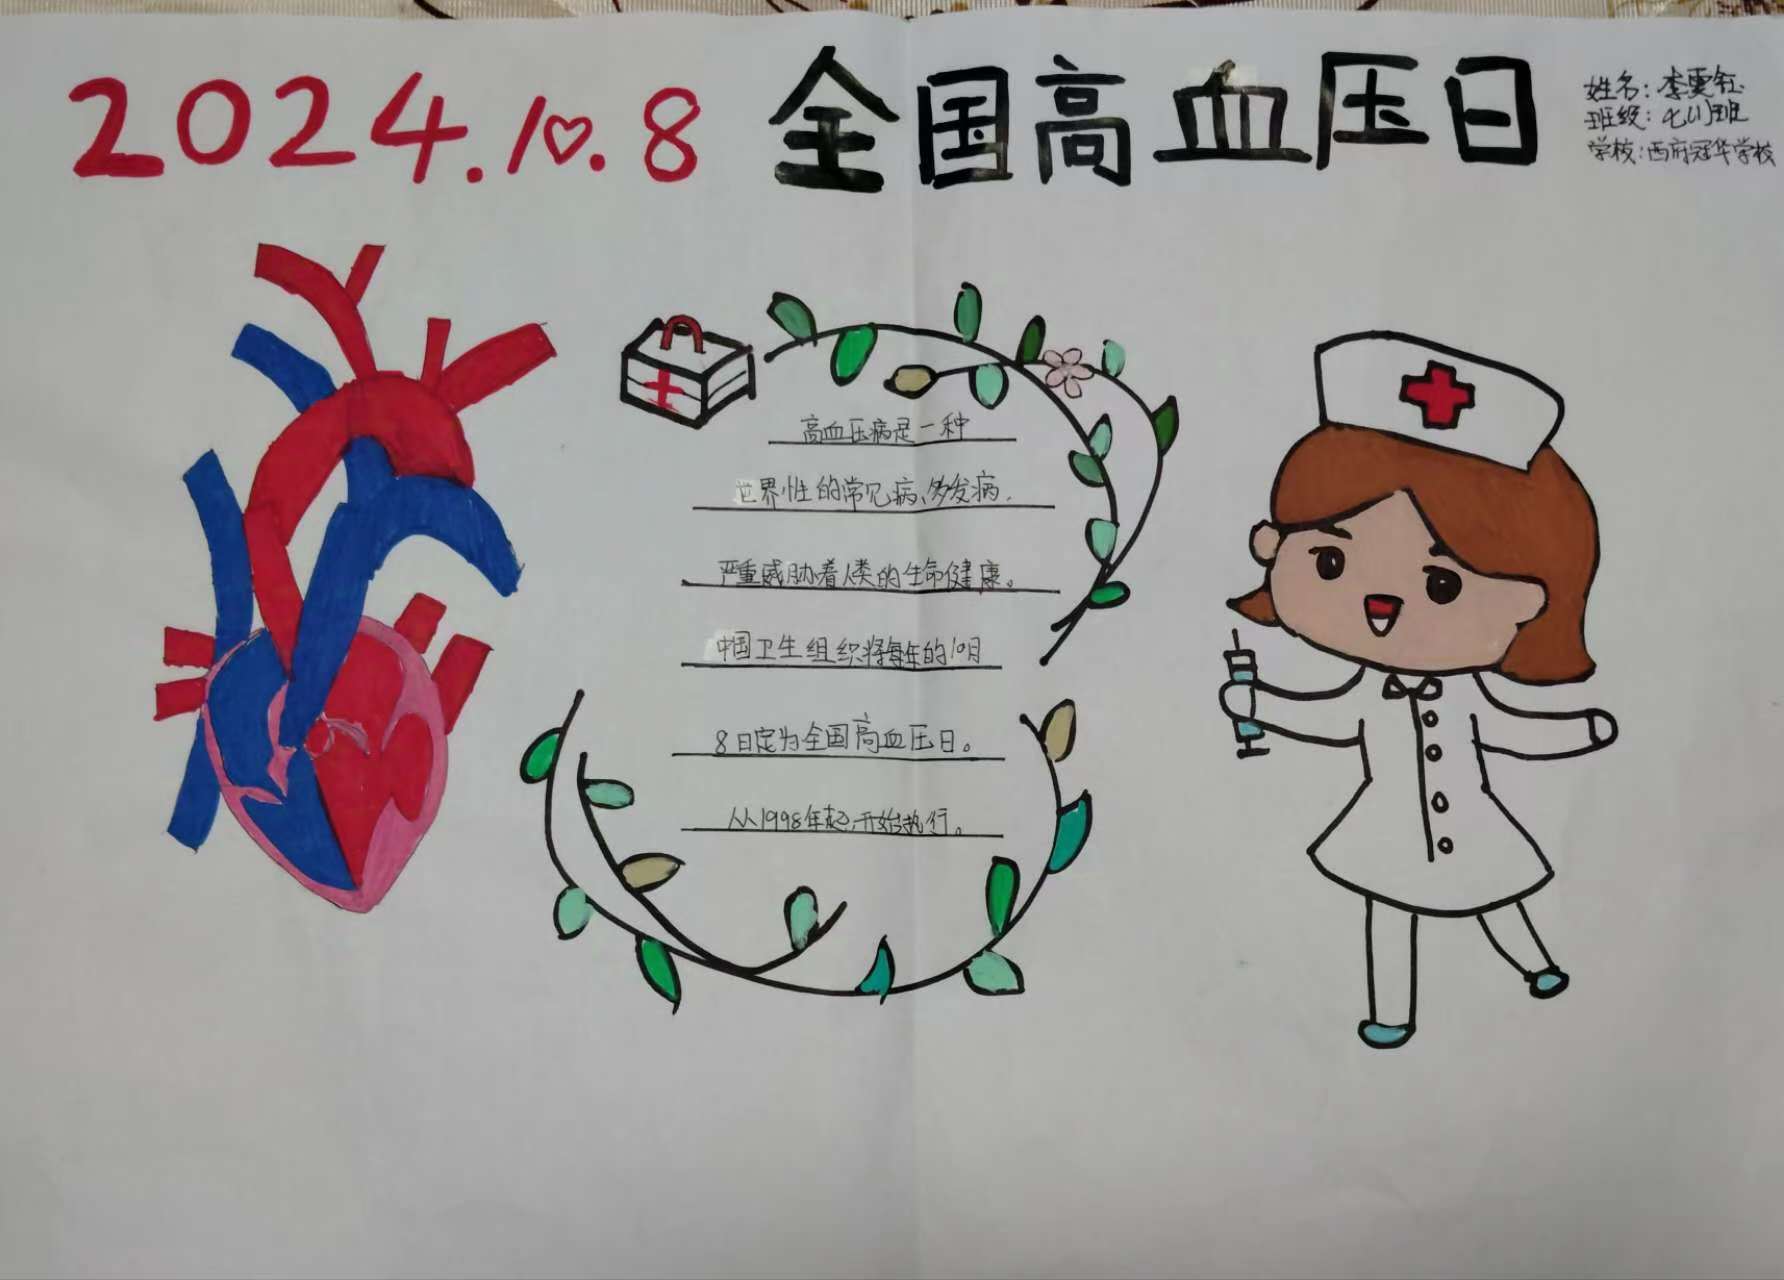 2024.10.8 全国高血压日
姓名：李雯钰
班级：七(1)班
学校：西府冠华学校
高血压病是一种
世界性的常见病、多发病，
严重威胁着人类的生命健康。
中国卫生组织将每年的10月
8日定为全国高血压日。
从1998年起，开始执行。